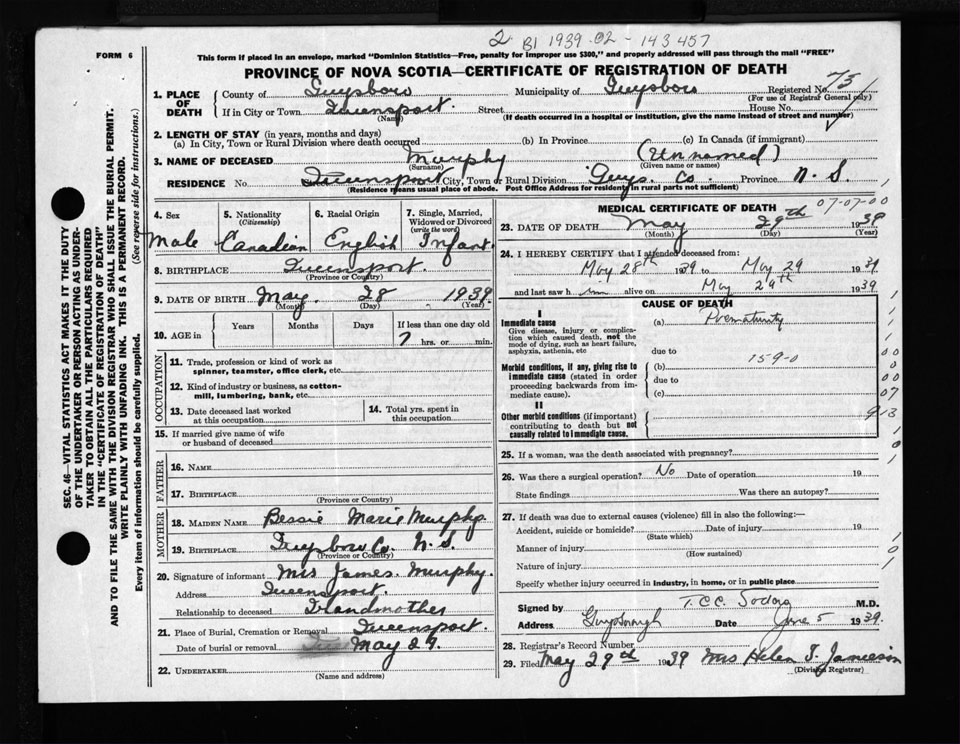 2 B1 1939-02-143457
FORM 6
This form if placed in an envelope, marked "Dominion Statistics—Free, penalty for improper use $300," and properly addressed will pass through the mail "FREE"
PROVINCE OF NOVA SCOTIA—CERTIFICATE OF REGISTRATION OF DEATH
1. PLACE OF DEATH
County of Guysboro Municipality of Guysboro Registered No. 73
(For use of Registrar General only)
If in City or Town Queensport. Street House No.
(Name) (If death occurred in a hospital or institution, give the name instead of street and number)
2. LENGTH OF STAY (in years, months and days)
(a) In City, Town or Rural Division where death occurred (b) In Province (c) In Canada (if immigrant)
3. NAME OF DECEASED Murphy (Unnamed)
(Surname) (Given name or names)
RESIDENCE No. Queensport City, Town or Rural Division Guys. Co. Province N. S.
(Residence means usual place of abode. Post Office Address for residency in rural parts not sufficient)
4. Sex
Male
5. Nationality
(Citizenship)
Canadian
6. Racial Origin
English
7. Single, Married, Widowed or Divorced
(write the word)
Infant.
8. BIRTHPLACE Queensport.
(Province or Country)
9. DATE OF BIRTH May. 28 1939
(Month) (Day) (Year)
10. AGE in Years Months Days If less than one day old
7 hrs. or min.
OCCUPATION
11. Trade, profession or kind of work as
spinner, teamster, office clerk, etc.
12. Kind of industry or business, as cotton-
mill, lumbering, bank, etc.
13. Date deceased last worked
at this occupation
14. Total yrs. spent in
this occupation
15. If married give name of wife
or husband of deceased
FATHER
16. NAME
17. BIRTHPLACE
(Province or Country)
MOTHER
18. MAIDEN NAME Bessie Marie Murphy
19. BIRTHPLACE Guysboro Co. N. S.
(Province or Country)
20. Signature of informant Mrs James. Murphy.
Address Queensport.
Relationship to deceased Grandmother
21. Place of Burial, Cremation or Removal Queensport.
Date of burial or removal May 29.
22. UNDERTAKER
(Name and address)
MEDICAL CERTIFICATE OF DEATH 07-07-00
23. DATE OF DEATH May 29th 1939
(Month) (Day) (Year)
24. I HEREBY CERTIFY that I attended deceased from:
May 28th 1939 to May 29 1939
and last saw him alive on May 29th 1939
CAUSE OF DEATH
I
Immediate cause
Give disease, injury or complication which caused death, not the mode of dying, such as heart failure, asphyxia, asthenia, etc
(a) Prematurity
due to
Morbid conditions, if any, giving rise to immediate cause (stated in order proceeding backwards from immediate cause).
(b) 159-0
due to
(c)
II
Other morbid conditions (if important) contributing to death but not causally related to immediate cause.
00
00
07
913
25. If a woman, was the death associated with pregnancy?
26. Was there a surgical operation? No Date of operation 19
State findings Was there an autopsy?
27. If death was due to external causes (violence) fill in also the following:—
Accident, suicide or homicide? Date of injury 19
(State which)
Manner of injury
(How sustained)
Nature of injury
Specify whether injury occurred in industry, in home, or in public place
Signed by M.D.
Address Guysborough Date June 5 1939.
28. Registrar's Record Number
29. Filed May 29th 1939 Mrs Helen T. Jamieson
(Division Registrar)
SEC. 46—VITAL STATISTICS ACT MAKES IT THE DUTY
OF THE UNDERTAKER OR PERSON ACTING AS UNDER-
TAKER TO OBTAIN ALL THE PARTICULARS REQUIRED
IN THE "CERTIFICATE OF REGISTRATION OF DEATH"
AND TO FILE THE SAME WITH THE DIVISION REGISTRAR WHO SHALL ISSUE THE BURIAL PERMIT.
WRITE PLAINLY WITH UNFADING INK. THIS IS A PERMANENT RECORD.
Every item of information should be carefully supplied. (See reverse side for instructions.)